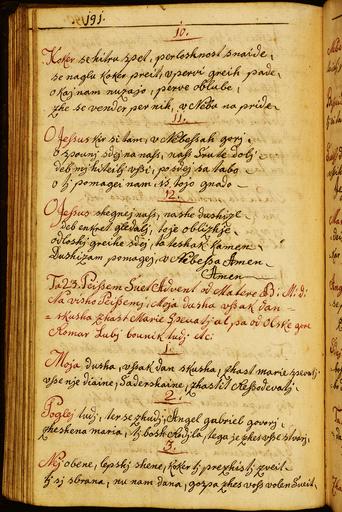 191.
10.
Koker se hitru zpet, perloshnost snaide,
se naglu koker preit, v pervi greih pade,
o kaj nam nuzajo, perve oblube,
zhe se vender per nih, v Nebu na pride
11.
O Jessus kir si tam, v Nebessah gorj,
spounj sdej na nass, nass Srate dolj
deb mj hiteilj vssi, po sdej sa tabo
o tj pomagei nam is, tojo gnado
12.
O Jessus shegnej nass, nashe dushize
deb enkret gledalj, toje oblizhje
odloshj greihe sdej, ta teshak kamen
Dushizam pomagej, v Nebessa Amen
Amen
Ta 23. Peissem Suet Advent od Matere B: M: D:
Na visho Peissemj, Moja dusha vssak dan
skusha zhast Marie Spevatj al pa od Olske gore
Komar Lubj bounik tudj etc:
1.
Moja, dusha, vssak dan skusha, zhast marie spevatj
vsse nje diaine, Saderskaine, zhastit Ressodevatj
2.
Poglej tudj, ter se zhudj, Angel gabriel govorj,
zheshena maria, tj bosh Rodila, tega je zhes vsse stvarj,
3.
Mej obene, lepshj shene, koker tj prezhistj zveit
tj sj sbrana, nu nam dana, gospa zhes voss volen Sveit